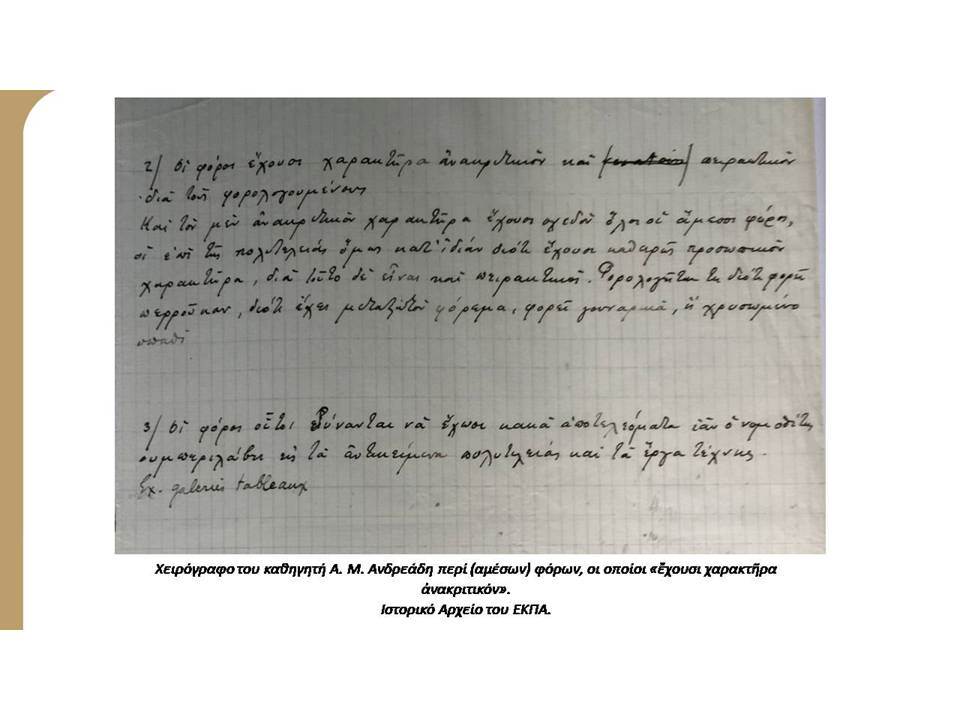 2/ Οἱ φόροι ἔχουσι χαρακτῆρα ἀνακριτικὸν καὶ πειρακτικὸν
διὰ τοὺς φορολογουμένους
Καὶ τὸν μὲν ἀνακριτικὸν χαρακτῆρα ἔχουσι σχεδὸν ὅλοι οἱ ἄμεσοι φόροι,
οἱ ἐπὶ τῆς πολυτελείας ὅμως κατ' ἰδίαν διότι ἔχουσι καθαρῶς προσωπικὸν
χαρακτῆρα, διὰ τοῦτο δὲ εἶναι καὶ πειρακτικοί. Φορολογεῖται τις διότι φορεῖ
περροῦκαν, διότι ἔχει μεταξωτὸν φόρεμα, φορεῖ γουναρικά, ἢ χρυσωμένο
σπαθί
3/ Οἱ φόροι οὗτοι δύνανται νὰ ἔχωσι κακὰ ἀποτελέσματα ἐὰν ὁ νομοθέτης
συμπεριλάβει εἰς τὰ ἀντικείμενα πολυτελείας καὶ τὰ ἔργα τέχνης.
Ex. galeries tableaux
Χειρόγραφο του καθηγητή Α. Μ. Ανδρεάδη περί (αμέσων) φόρων, οι οποίοι «ἔχουσι χαρακτῆρα
ἀνακριτικόν».
Ιστορικό Αρχείο του ΕΚΠΑ.